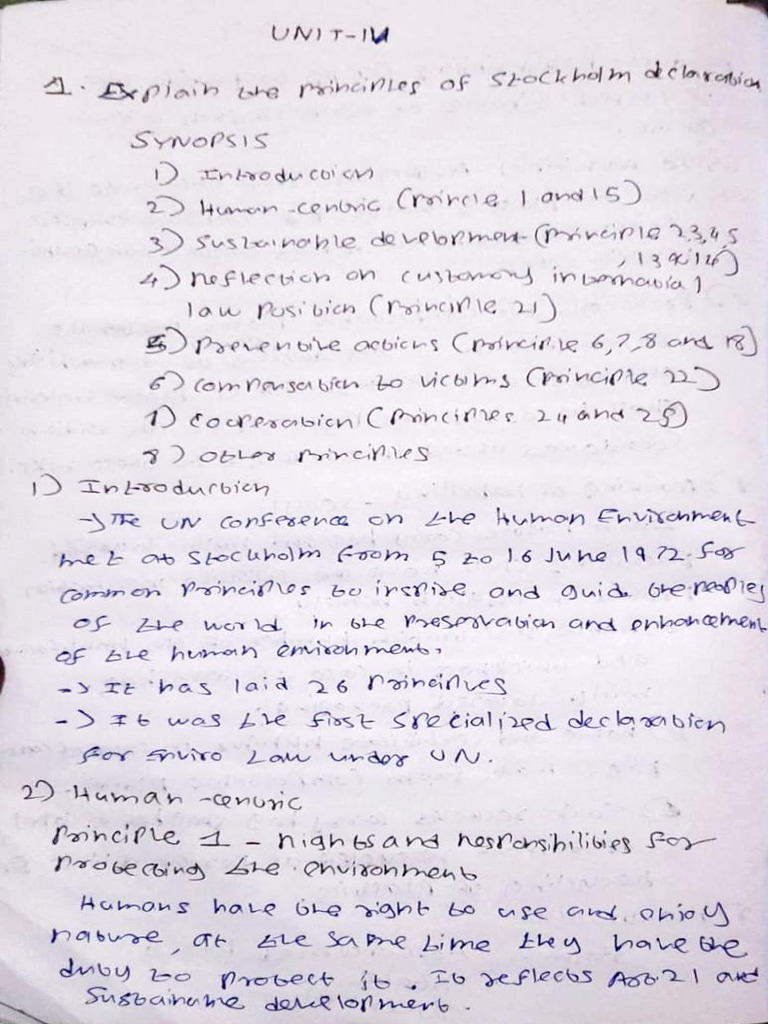 UNIT-IV
1. Explain the principles of Stockholm declaration
SYNOPSIS
1) Introduction
2) Human-centric (Princile 1 and 15)
3) Sustainable development (principle 2,3,4,5
, 13 & 14)
4) Reflection on customary international
law position (Principle 21)
5) Preventive actions (principle 6,7,8 and 18)
6) compensation to victims (Principle 22)
7) Cooperation (Principles 24 and 25)
8) Other Principles
1) Introduction
→ The UN conference on the Human Environment
met at Stockholm from 5 to 16 June 1972 for
common principles to inspire and guide the peoples
of the world in the preservation and enhancement
of the human environment.
-> It has laid 26 Principles
-> It was the first specialized declaration
for Enviro Law under UN.
2) Human-centric
Principle 1 - Rights and Responsibilities for
Protecting the environment
Humans have the right to use and enjoy
nature, at the same time they have the
duty to protect it. It reflects Art.21 and
Sustainable development.